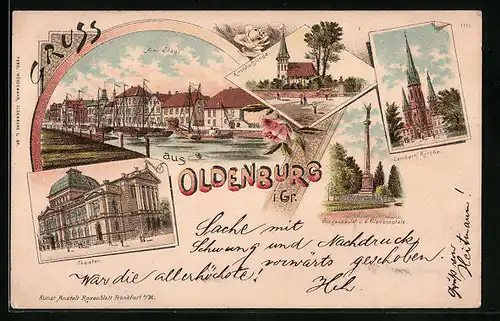 1771
GRUSS
Am Stau.
Lamberti Kirche
aus
OLDENBURG
i. Gr.
Siegessäule u. d. Friedensplatz.
Theater.
Sache mit
Schwung und Nachdruck
vorwärts geschoben.
War die allerhöchste!
Gruß von
Heitmann!
Kunst Anstalt Rosenblatt Frankfurt a/M.